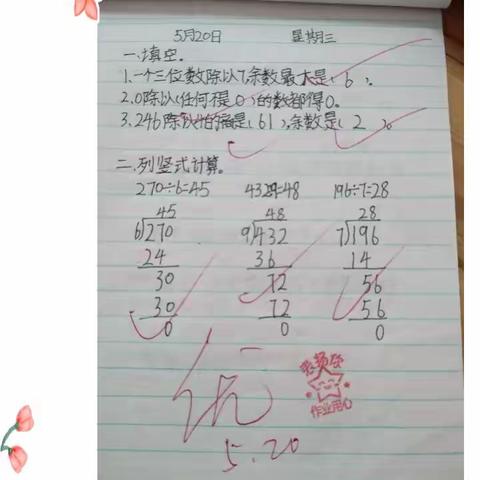 5月20日 星期三
一、填空。
1.一个三位数除以7,余数最大是(6)。
2.0除以(任何不是0)的数都得0。
3.246除以4的商是(61),余数是(2)。
二、列竖式计算。
270÷6=45 432÷9=48 196÷7=28
45 48 28
6 270 9 432 7 196
24 36 14
30 72 56
30 72 56
0 0 0
优
表扬你
作业用心
5.20